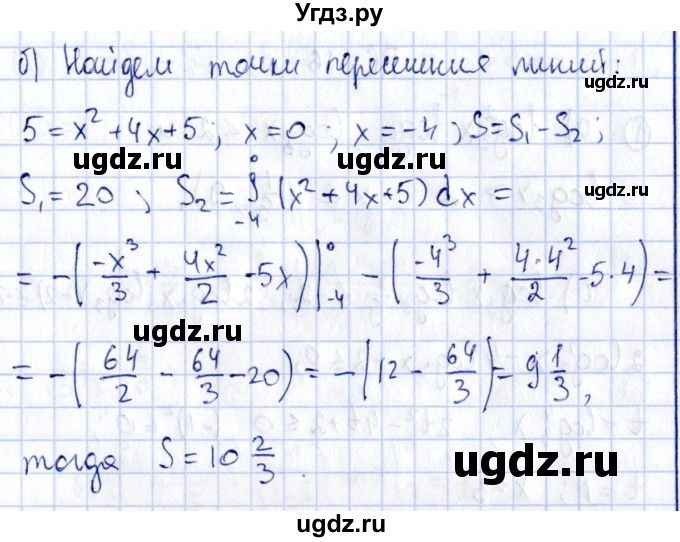 Угдз.ру
б) Найдем точки пересечения линий:
5 = x² + 4x + 5; x = 0; x = -4; S = S₁ - S₂;
ugdz.ru ugdz.ru
S₁ = 20; S₂ = ∫₋₄⁰ (x² + 4x + 5) dx =
= -(-x³/3 + 4x²/2 - 5x)|₋₄⁰ - (-4³/3 + 4·4²/2 - 5·4) =
ugdz.ru ugdz.ru
= -(64/2 - 64/3 - 20) = -(12 - 64/3) = 9 1/3,
тогда S = 10 2/3.
ugdz.ru ugdz.ru
ugdz.ru